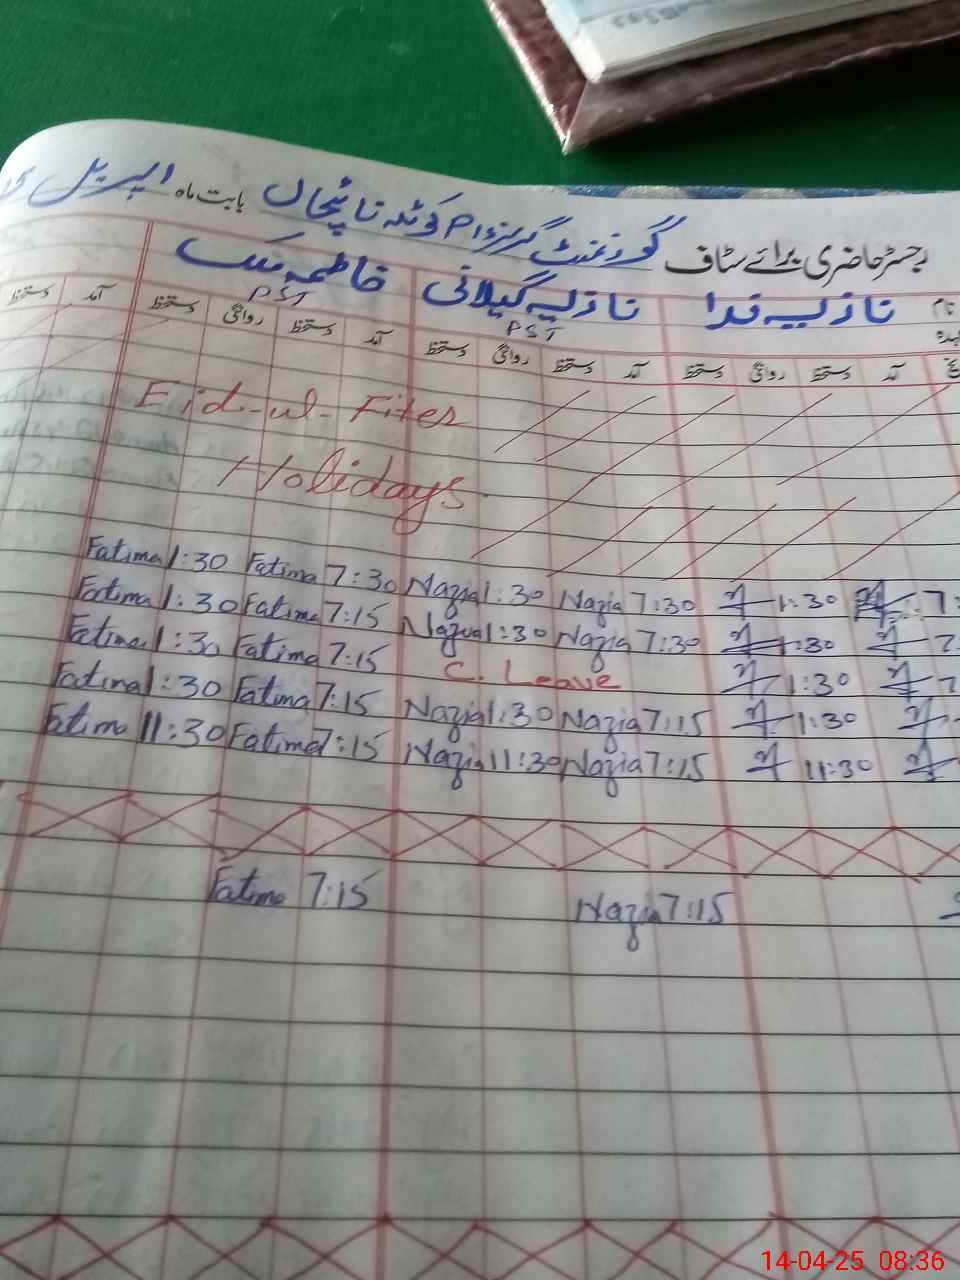 رجسٹر حاضری برائے سٹاف گورنمنٹ گرلز بابت ماہ اپریل
نام نازیہ فدا نازیہ گیلانی فاطمہ ملک
PST PST
آمد دستخط روانگی دستخط آمد دستخط روانگی دستخط آمد دستخط روانگی دستخط آمد دستخط
Eid-ul-Fiter
Holidays
Fatima 1:30 Fatima 7:30 Nazia 1:30 Nazia 7:30 1:30 7:
Fatima 1:30 Fatima 7:15 Nazia 1:30 Nazia 7:30 1:30
Fatima 1:30 Fatima 7:15 C. Leave 1:30
Fatima 1:30 Fatima 7:15 Nazia 1:30 Nazia 7:15 1:30
Fatima 11:30 Fatima 7:15 Nazia 11:30 Nazia 7:15 11:30
Fatima 7:15 Nazia 7:15
14-04-25 08:36